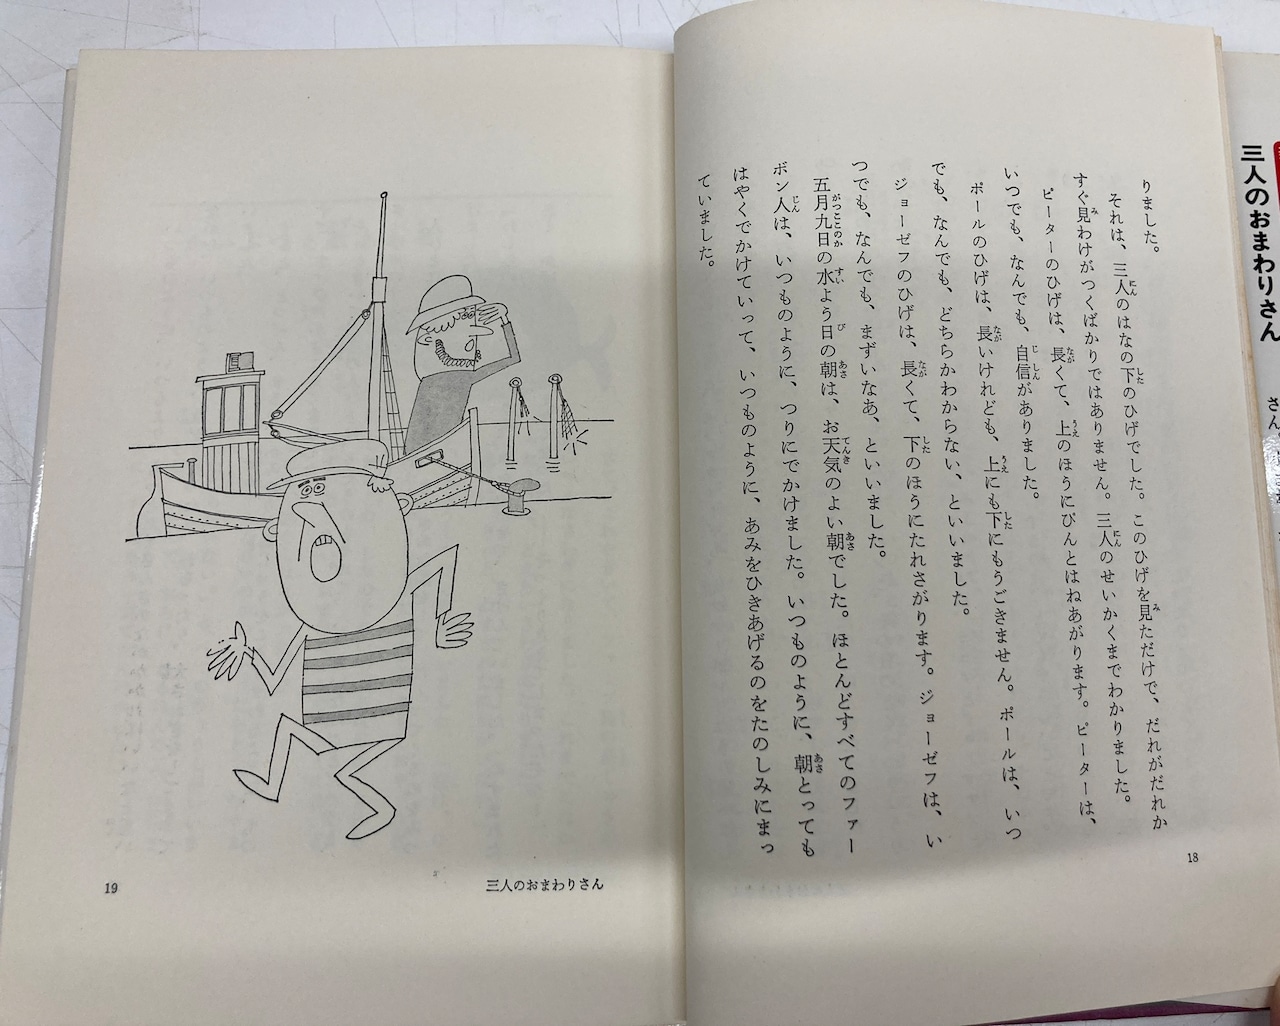 りました。
それは、三人のはなの下のひげでした。このひげを見ただけで、だれがだれか
すぐ見わけがつくばかりではありません。三人のせいかくまでわかりました。
ピーターのひげは、長くて、上のほうにぴんとはねあがります。ピーターは、
いつでも、なんでも、自信がありました。
ポールのひげは、長いけれども、上にも下にもうごきません。ポールは、いつ
でも、なんでも、どちらかわからない、といいました。
ジョーゼフのひげは、長くて、下のほうにたれさがります。ジョーゼフは、い
つでも、なんでも、まずいなあ、といいました。
五月九日の水よう日の朝は、お天気のよい朝でした。ほとんどすべてのファー
ボン人は、いつものように、つりにでかけました。いつものように、朝とっても
はやくでかけていって、いつものように、あみをひきあげるのをたのしみにまっ
ていました。
18
三人のおまわりさん
19
三人のおまわりさん